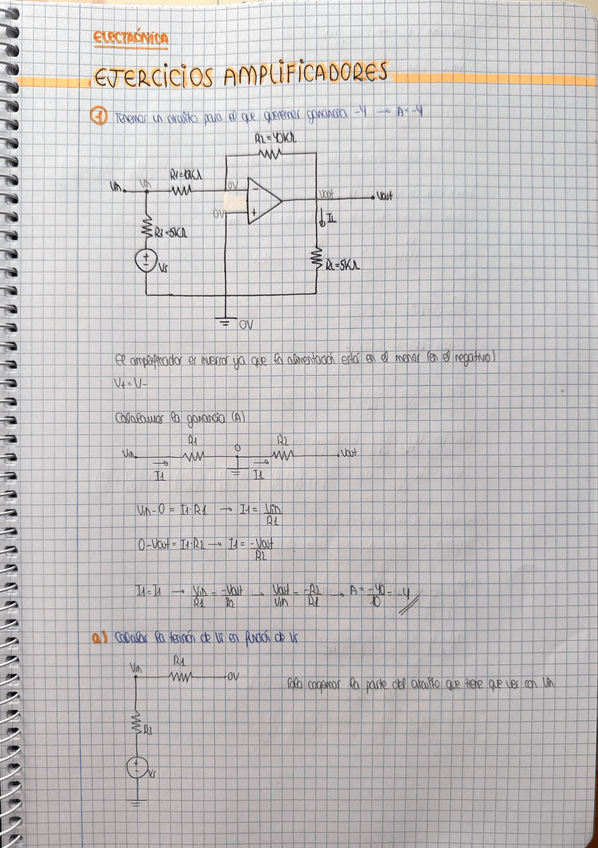 ELECTRÓNICA
EJERCICIOS AMPLIFICADORES
1 Tenemos un circuito para el que queremos ganancia -4 → A=-4
R2=40KΩ
Vin
Vin
R1=10KΩ
0V
0V
Vout
Vout
IL
R3=5KΩ
RL=5KΩ
Vs
0V
El amplificador es inversor ya que la alimentación está en el menos (en el negativo)
V+=V-
Calculamos la ganancia (A)
Vin
R1
0
R2
Vout
I1
I1
Vin-0 = I1·R1 → I1 = Vin/R1
0-Vout = I1·R2 → I1 = -Vout/R2
I1=I1 → Vin/R1 = -Vout/R2 , Vout/Vin = -R2/R1 , A = -40/10 = -4
a) Calcular la tensión de en función de Vs
Vin
R1
0V
Solo cogemos la parte del circuito que tiene que ver con Vin
R3
Vs